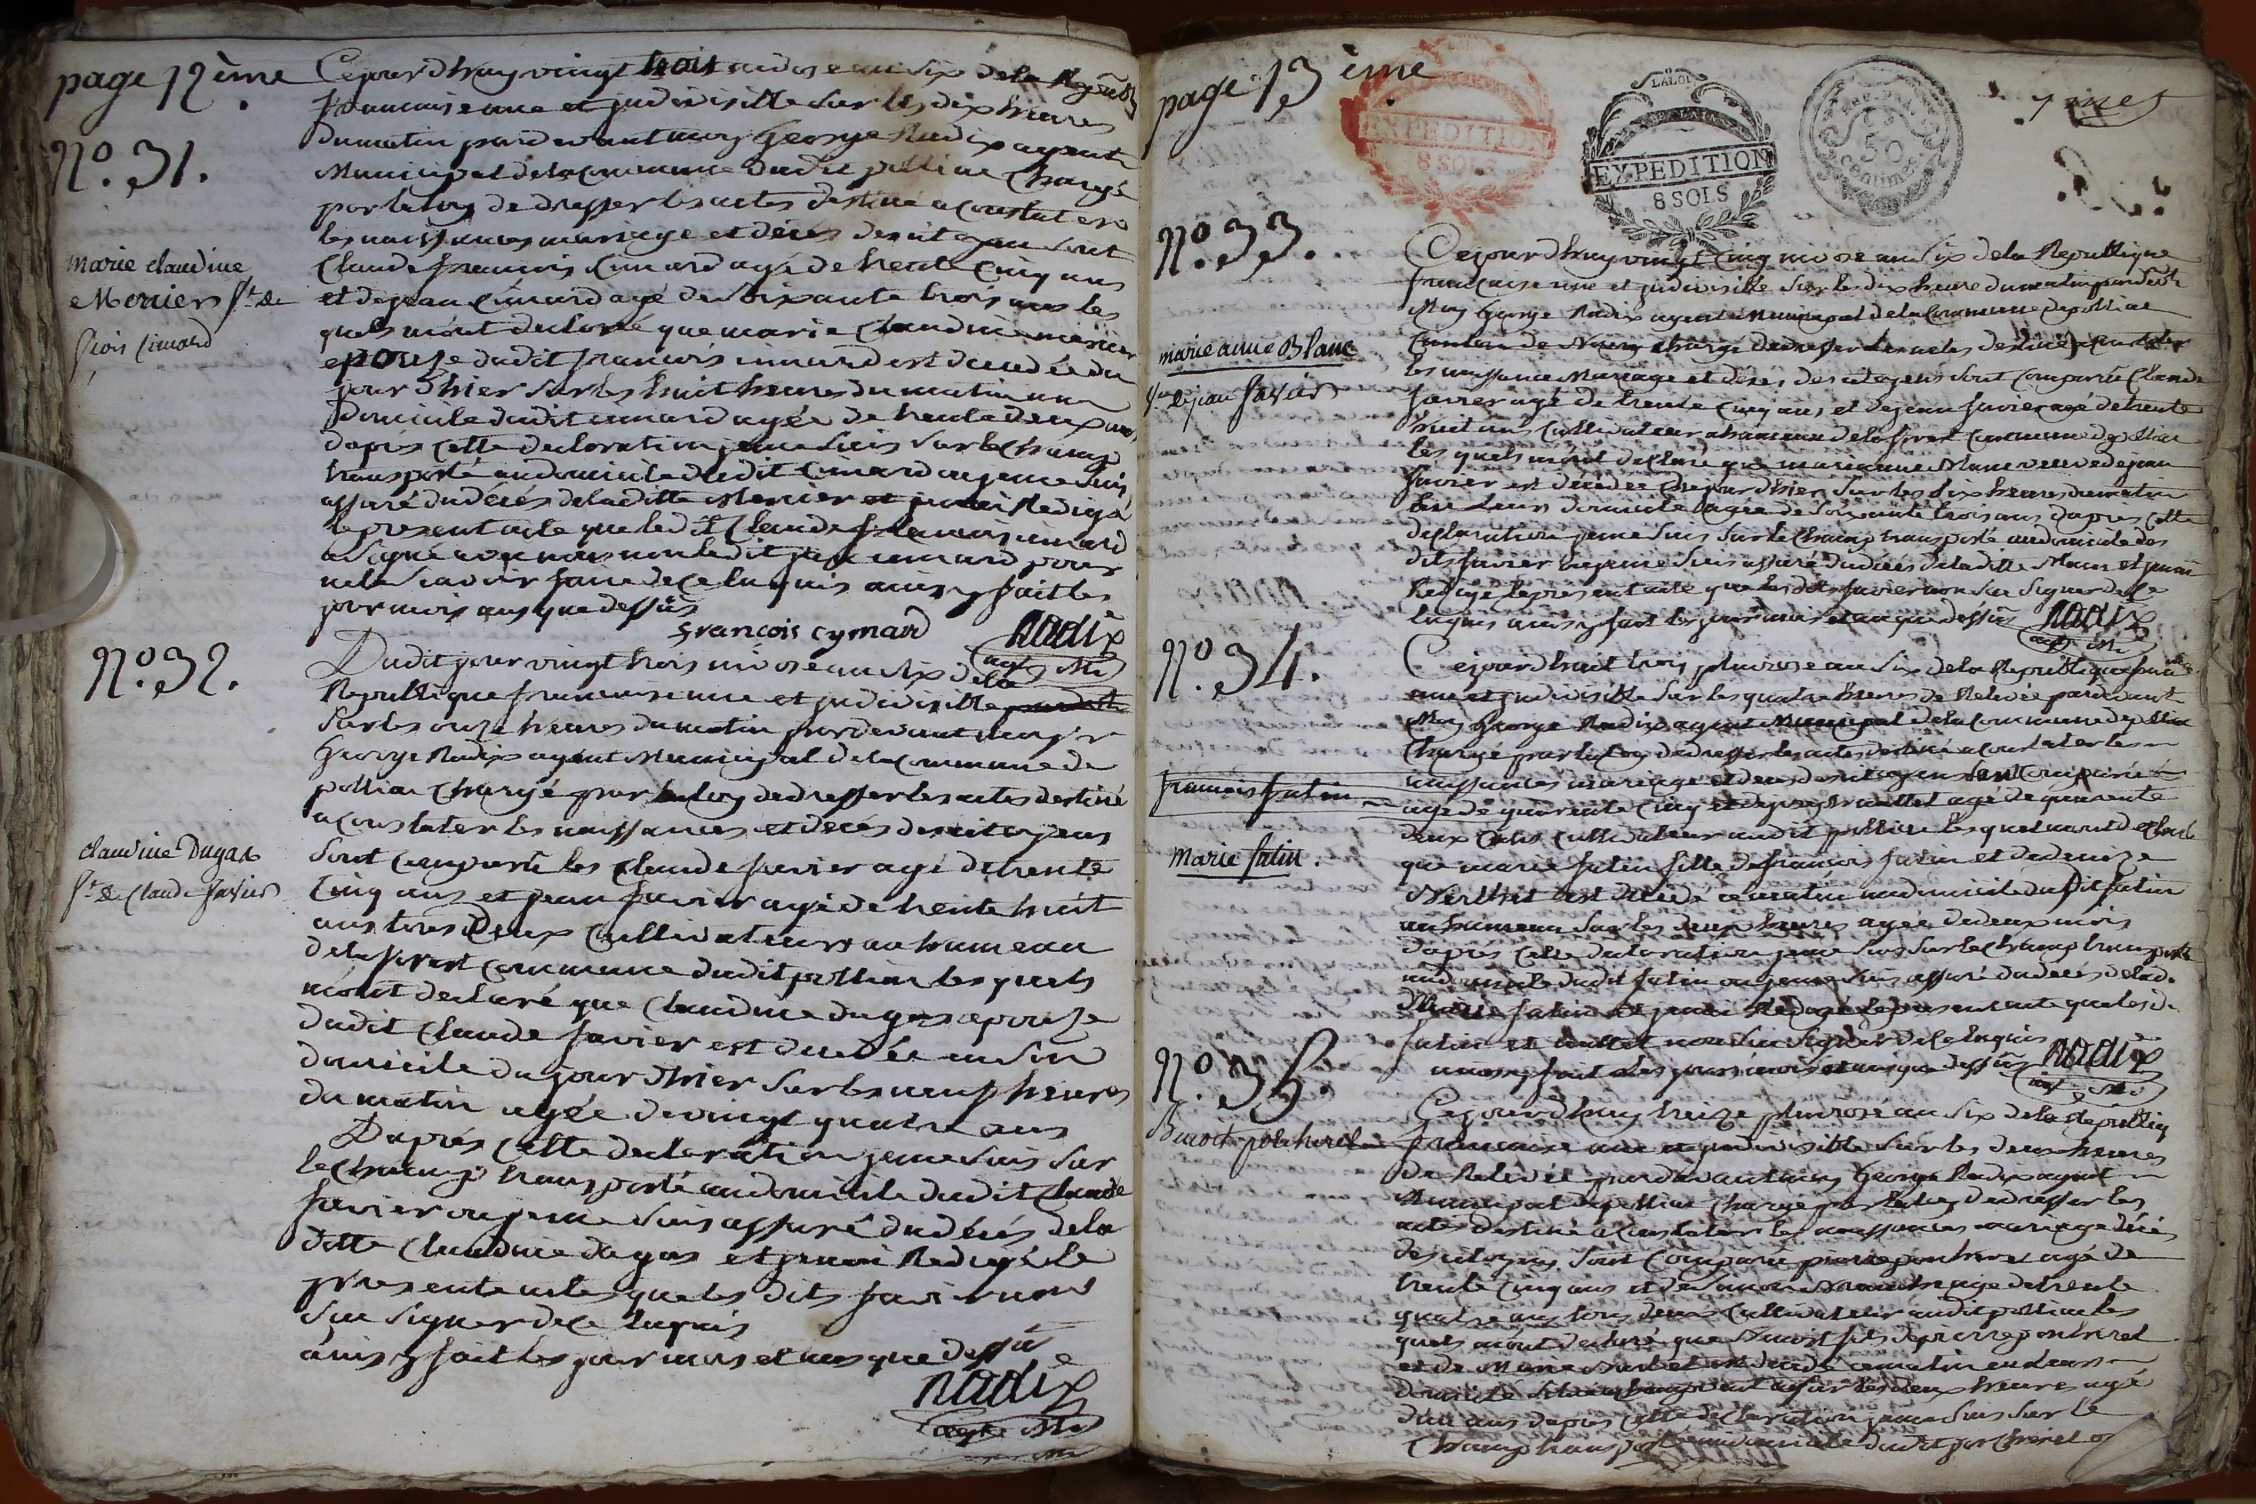 page 12ème
Cejourdhuy vingt trois nivose an six de la Repub
francaise une et jndivisible sur les dix heures
du matin pardevant moy George Nadix agent
Municipal de la Commune dudit pollia Chargé
par la loy de dresser les actes destiné a Constater
les naissances mariage et décés des citoyens sont
Claude francois Cimard agé de trente Cinq ans
et de jean Cimard agé de soixante trois ans les
quels m'ont declaré que marie Claudine mercier
epouse dudit francois cimard est decedée du
jour d'hier sur les huit heures du matin au
Domicile dudit cimard agée de trente deux ans
daprés cette declaration jeme suis sur le champ
transporté au domicile dudit Cimard ou jeme suis
assuré du décés de la ditte Mercier et jenai Redigé
le present acte que le dt Claude francois cimard
a signé avec nous non ledit jean cimard pour
ne le scavoir faire de ce Enquis ainsy fait les
jour mois ans que dessûs
francois cymard
Nadix
agt Mal
No. 31.
marie claudine
Merciers fe. de
frois Cimard
No. 32.
Dudit jour vingt trois nivose an six de la
Republique francaise une et jndivisible
sur les onze heures du matin pardevant moy
George Nadix agent Municipal de la Commune de
pollia Chargé par la loy de dresser les actes destiné
a Constater les naissances et decés des citoyens
sont Comparu les Claude favier agé de trente
Cinq ans et jean favier agé de trente huit
ans tous deux Cultivateurs au hameau
de la forest Commune dudit pollia les quels
m'ont declaré que Claudine dugas epouse
dudit Claude favier est decedée en son
domicile du jour d'hier sur les neuf heures
du matin agée de vingt quatre ans
Daprés Cette declaration jeme suis sur
le Champ transporté au domicile dudit Claude
favier ou jeme suis assuré du décés de la
ditte Claudine dugas et jenai Redigé le
present acte que les dits favier non
sus signer de ce Enquis
ainsy fait les jour mois et ans que dessûs
Nadix
agt Mal
claudine Dugas
fe. de Claude favier
page 13ème
LA LOI
EXPEDITION
8 SOLS
LA LOI
EXPEDITION
8 SOLS
50
Centimes
No. 33.
marie anne Blanc
Ve. de jean favier
Cejourdhuy vingt Cinq nivose an six de la Republique
francaise une et jndivisible sur les dix heure du matin pardevt
Moy George Nadix agent Municipal de la Commune de pollia
Canton de Chargé de dresser les actes destiné a Constater
les naissance Mariage et décés des citoyens sont Comparû Claude
favier agé de trente Cinq ans et de jean favier agé de trente
huit ans Cultivateur a hameau de la forest Commune de pollia
les quels m'ont declaré que marieanne Blanc veuve de jean
favier est decedée du jour d'hier sur les dix heures du matin
leur domicile agée de soixante trois ans daprés cette
declaration jeme suis sur le Champ transporté au domicile des
dits favier ou jeme suis assuré du décés de la ditte Blanc et jenai
Redigé le present acte que les dits favier non sus signer de ce
Enquis ainsy fait les jour mois et an que dessûs
Nadix
No. 34.
francois futin
marie futin.
Cejourdhuit trois pluviose an six de la Republique
une et jndivisible sur les quatre heures de Relevée pardevant
Moy George Nadix agent Municipal de la Commune de pollia
Chargé par la loy de dresser les actes destiné a Constater les
naissances mariage et deces des citoyens sont Comparû
agé de quarante Cinq et de agé de quarante
deux Cultivateur audit pollia les quels m'ont declaré
que marie futin fille de françois futin et de denise
est decedé ce matin au domicile dudit futin
au hameau sur les deux heures agée de deux mois
daprés cette declaration jeme suis sur le champ transporté
au domicile dudit futin ou jeme suis assuré du décés de lad.
Marie futin et jenai Redigé le present acte que lesd.
futin et non sus signer de ce Enquis
ainsy fait les jours mois et an que dessûs
Nadix
No. 35.
Benoit pohcherel
Cejourdhuy treize pluviose an six de la Republiq
francaise une et jndivisible sur les deux heures
de Relevée pardevant moy George Nadix agent
Municipal de pollia Chargé par la loy de dresser les
actes destiné a Constater les naissances mariage décés
des citoyens sont Comparû pierre poncheret agé de
trente Cinq ans et de agé de trente
quatre ans tous deux Cultivateur audit pollia les
quels m'ont declaré que Benoit fils de pierre poncheret
et de Marie est decedé ce matin en leurs
domicile sur les deux heures agé
d'un ans daprés Cette declaration jeme suis sur le
Champ transporté au domicile dudit poncheret ou